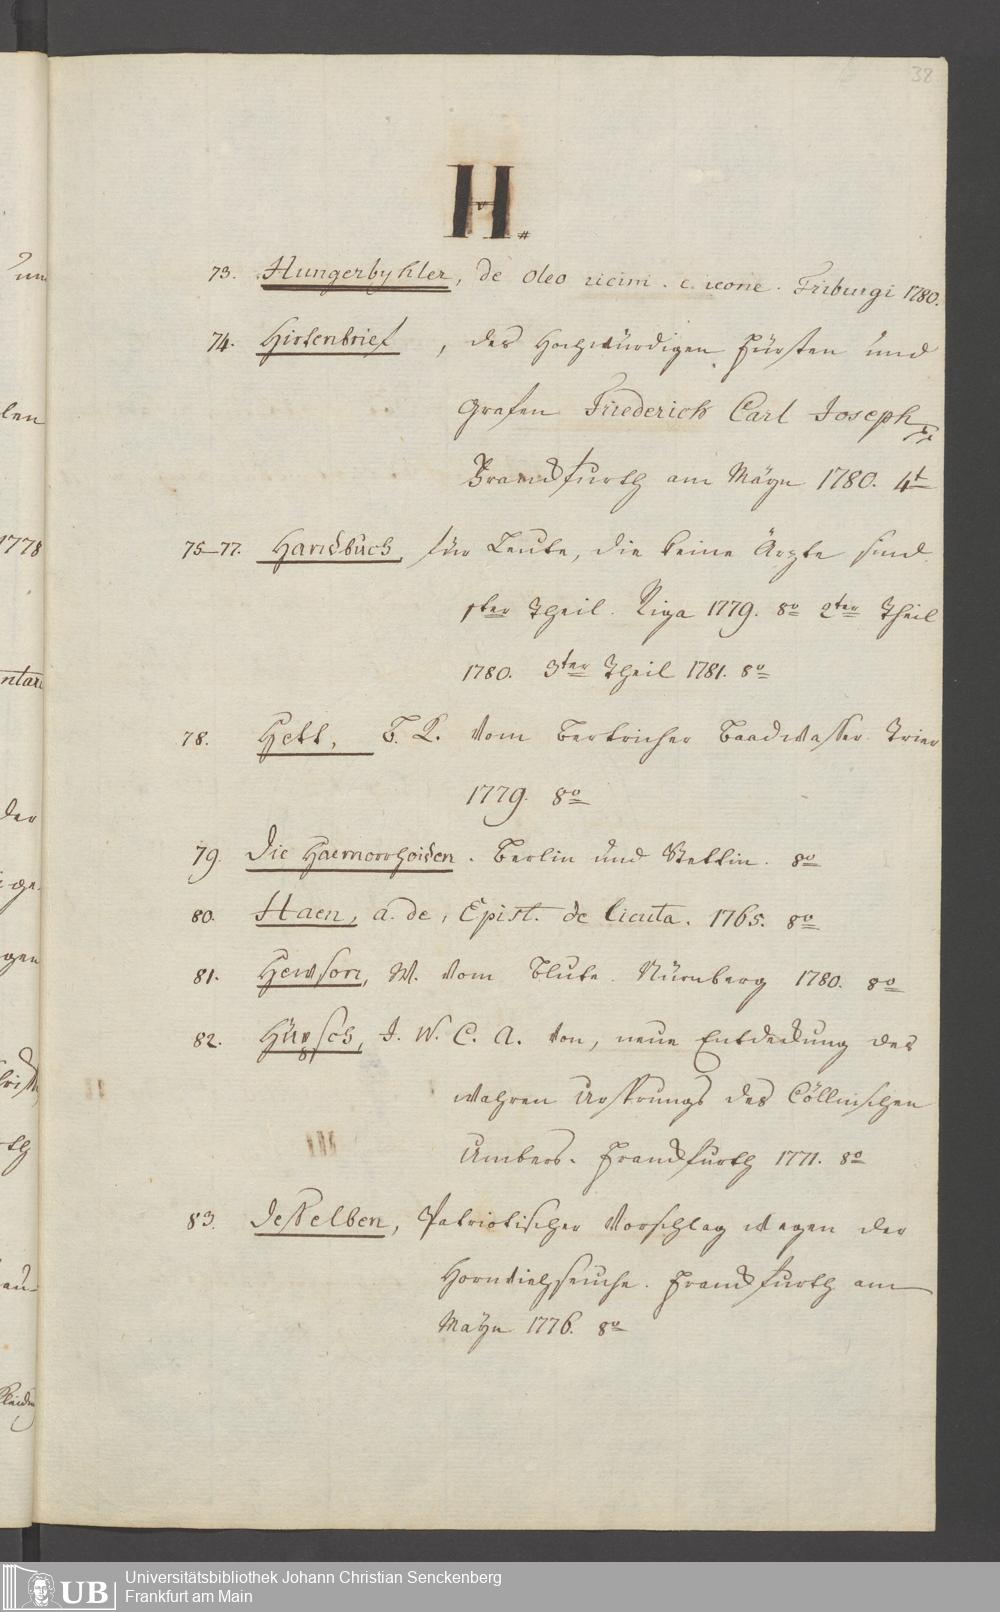 38
H.
73. Hungerbyhler, de oleo ricini. c. icone. Friburgi 1780.
74. Hirtenbrief, des Hochwürdigen Fürsten und
Grafen Friederich Carl Joseph
Franckfurth am Mayn 1780. 4t
75–77. Handbuch für Leute, die keine Ärzte sind.
1ter Theil. Riga 1779. 8o 2ter Theil
1780. 3ter Theil 1781. 8o
78. Hett, vom Bertricher Baadwasser. Trier
1779. 8o
79. Die Haemorrhoiden. Berlin und Stettin. 8o
80. Haen, a. de, Epist. de cicuta. 1765. 8o
81. Hewson, W. vom Blute. Nürnberg 1780. 8o
82. Hüpsch, J. W. C. A. von, neue Entdeckung des
wahren Ursprungs des Cöllnischen
Umbers. Franckfurth 1771. 8o
83. Desselben, Patriotischer Vorschlag wegen der
Hornviehseuche. Franckfurth am
Mayn 1776. 8o
len
1778
ntari
der
gen
UB
Universitätsbibliothek Johann Christian Senckenberg
Frankfurt am Main